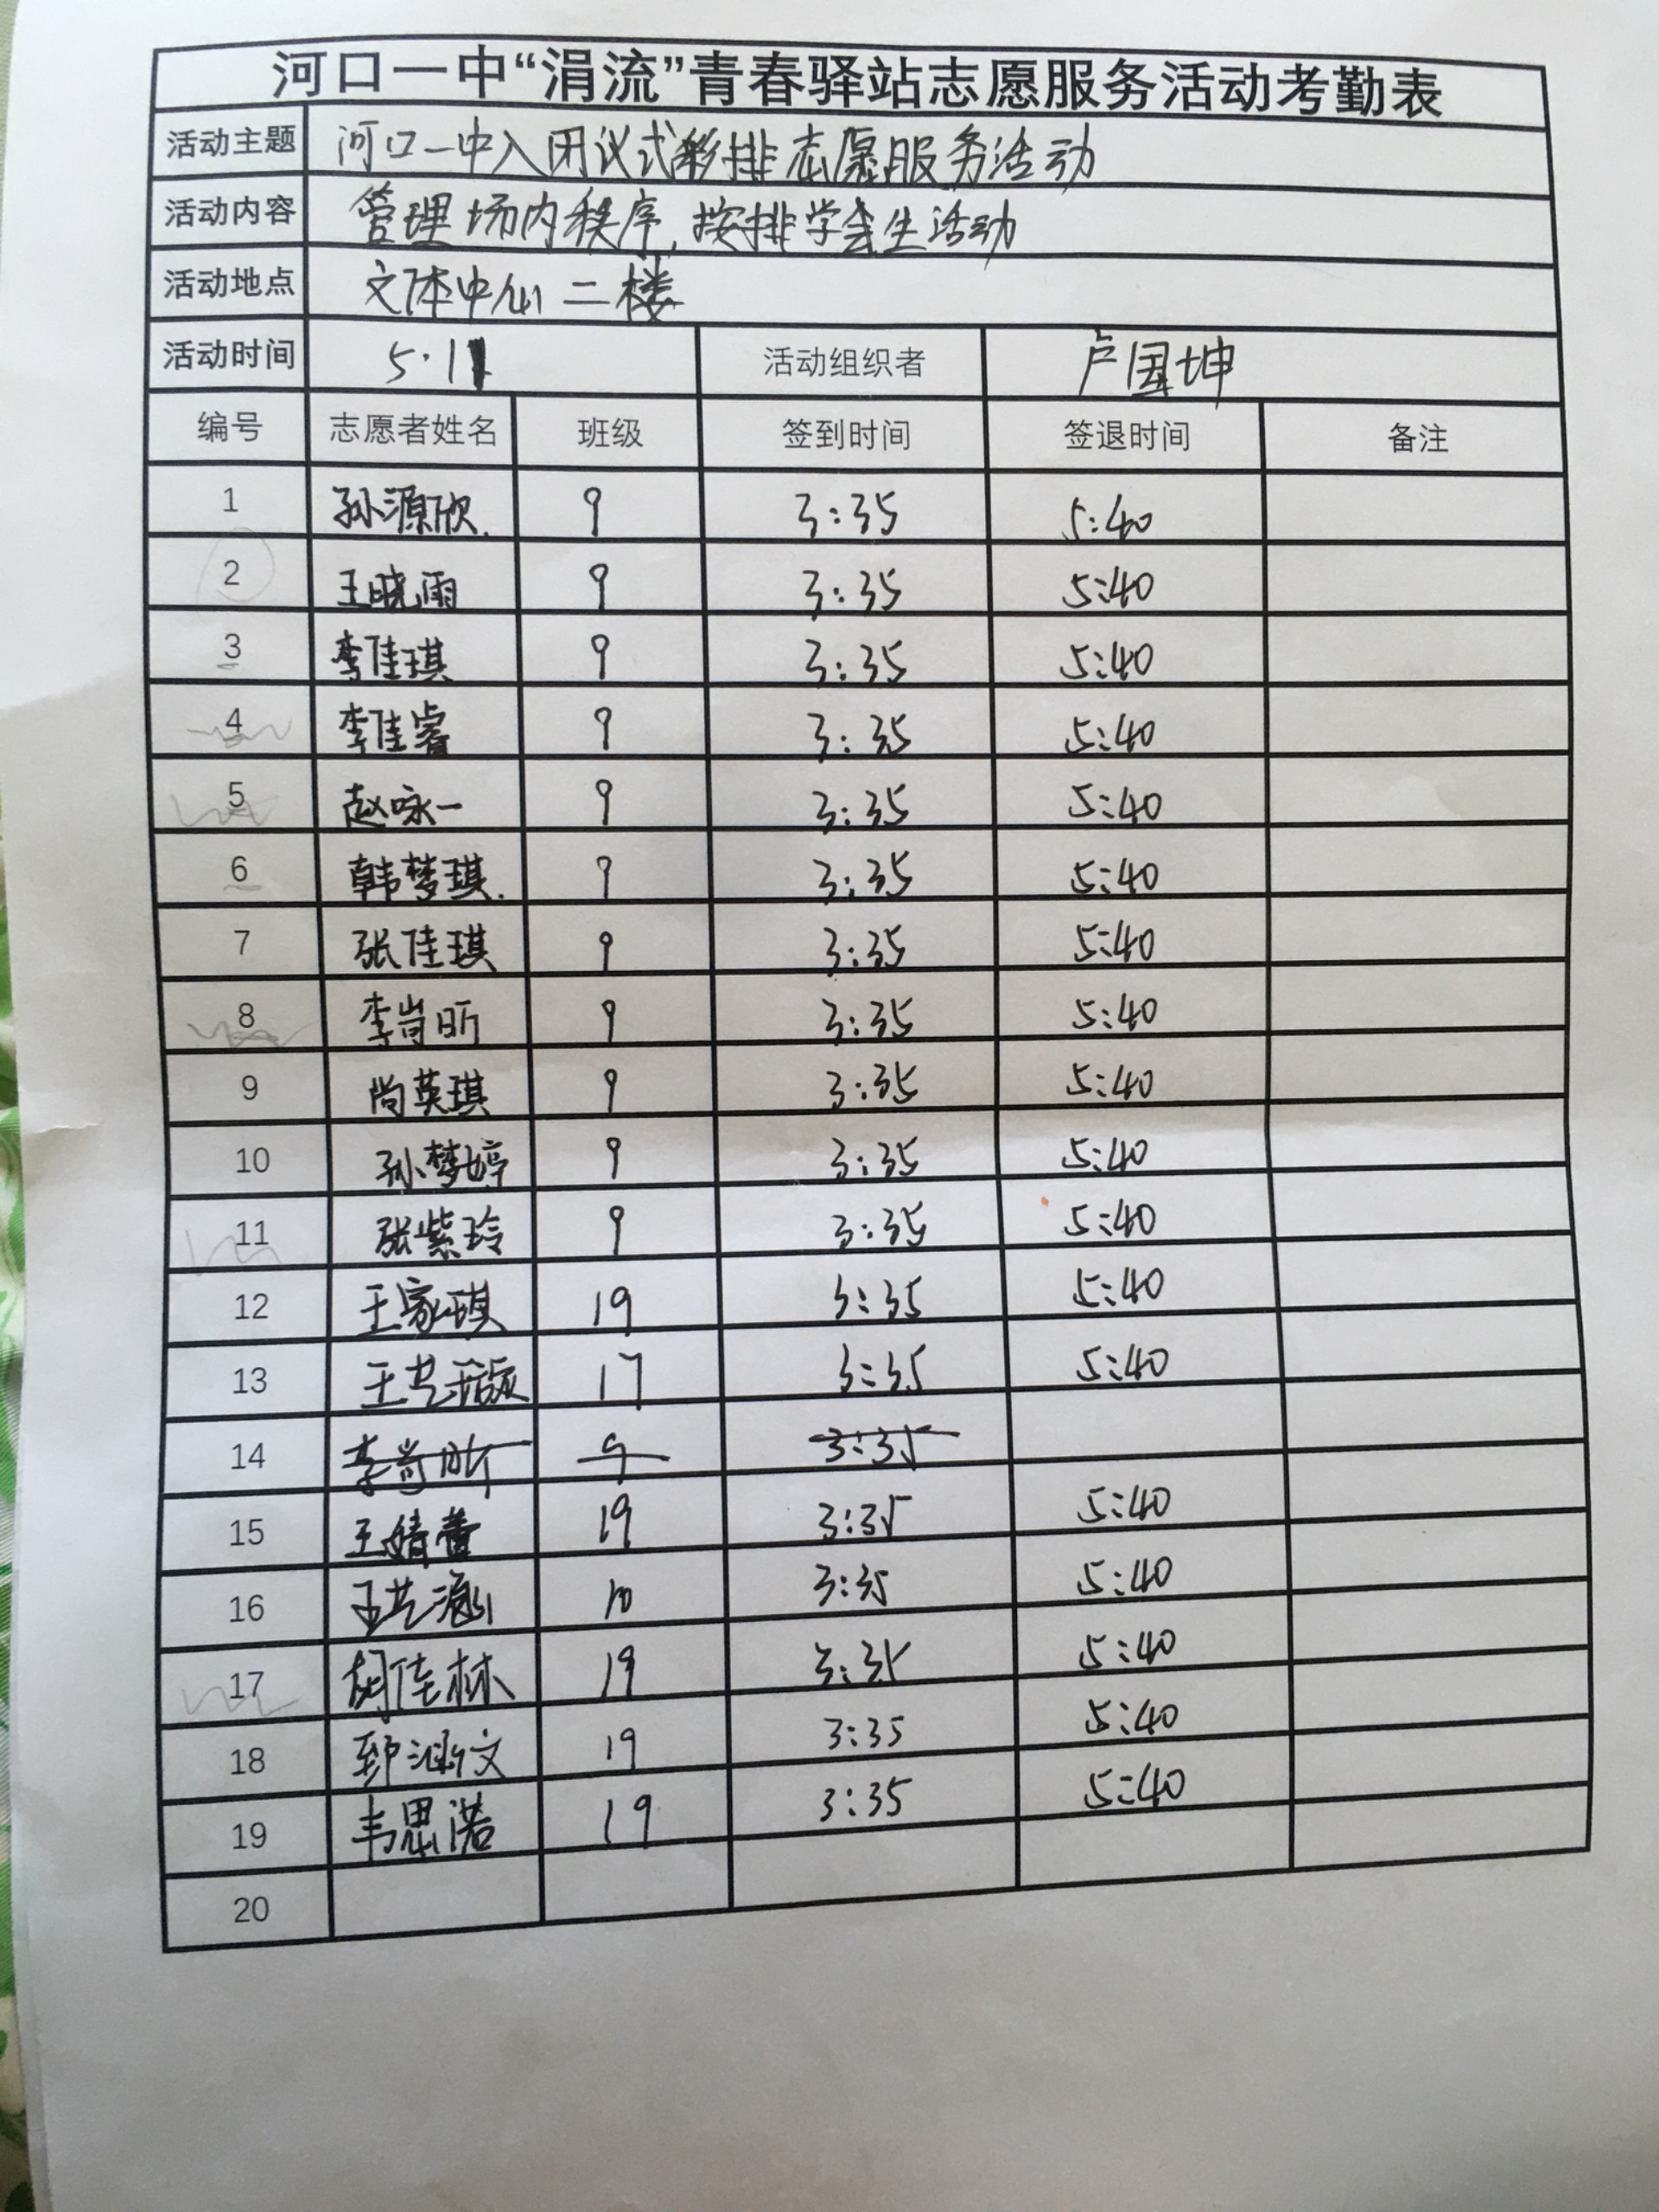 河口一中“涓流”青春驿站志愿服务活动考勤表
活动主题 河口一中入团议式彩排志愿服务活动
活动内容 管理场内秩序,按排学生活动
活动地点 文体中心二楼
活动时间 5.11 活动组织者 卢国坤
编号 志愿者姓名 班级 签到时间 签退时间 备注
1 孙源欣. 9 3:35 5:40
2 王晓雨 9 3:35 5:40
3 李佳琪 9 3:35 5:40
4 李佳睿 9 3:35 5:40
5 赵咏一 9 3:35 5:40
6 韩梦琪. 9 3:35 5:40
7 张佳琪 9 3:35 5:40
8 李岢昕 9 3:35 5:40
9 尚英琪 9 3:35 5:40
10 孙梦婷 9 3:35 5:40
11 张紫玲 9 3:35 5:40
12 王家琪 19 3:35 5:40
13 王艺璇 17 3:35 5:40
14 李岢昕 9 3:35
15 王婧蕾 19 3:35 5:40
16 王艺涵 10 3:35 5:40
17 胡佳林 19 3:35 5:40
18 郅涵文 19 3:35 5:40
19 韦思诺 19 3:35 5:40
20